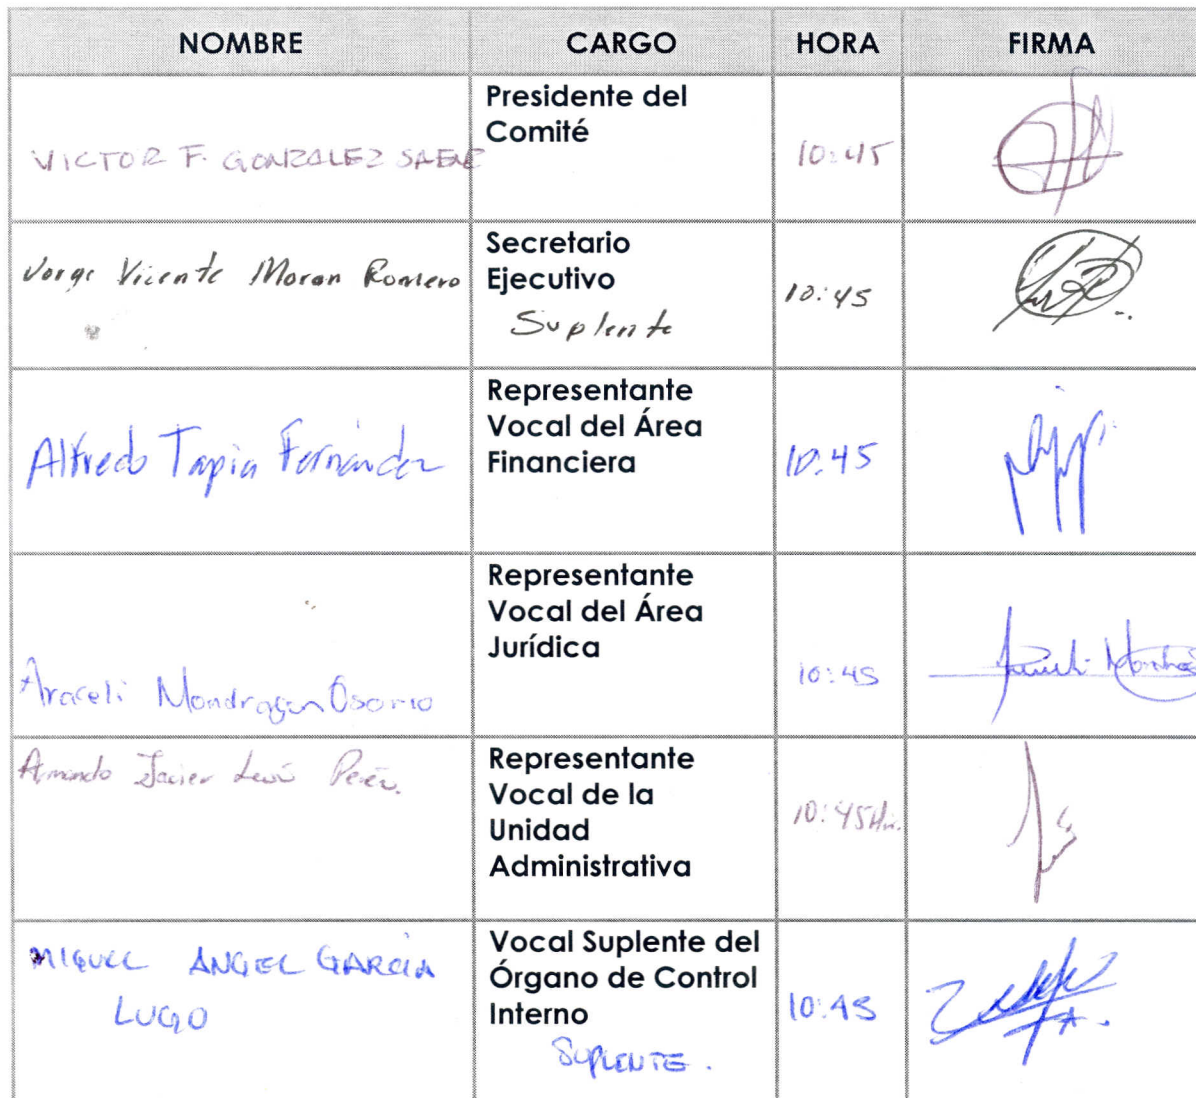 NOMBRE CARGO HORA FIRMA
VICTOR F. GONZALEZ SAENZ
Presidente del
Comité
10:45
Jorge Vicente Moran Romero
Secretario
Ejecutivo
Suplente
10:45
Alfredo Tapia Fernández
Representante
Vocal del Área
Financiera
10:45
Araceli Mondragon Osorio
Representante
Vocal del Área
Jurídica
10:45
Armando Javier
Representante
Vocal de la
Unidad
Administrativa
10:45
MIGUEL ANGEL GARCIA
LUGO
Vocal Suplente del
Órgano de Control
Interno
SUPLENTE.
10:45